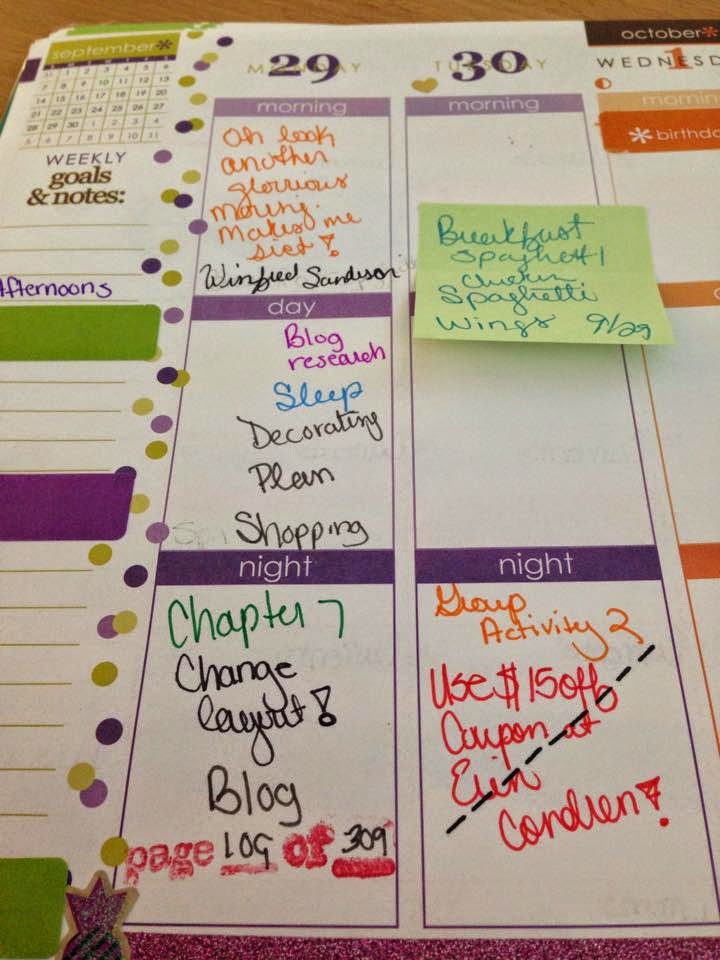 september*
7 8 9 10 11 12 13
14 15 16 17 18 19 20
21 22 23 24 25 26 27
28 29 30 1 2 3 4
5 6 7 8 9 10 11
WEEKLY
goals
& notes:
Afternoons
29
MONDAY
morning
Oh look
another
glorious
morning.
Makes me
sick!
Winifred Sanderson
day
Blog
research
Sleep
Decorating
Plan
Shopping
night
Chapter 7
Change
layout!
Blog
page 109 of 309
30
TUESDAY
morning
Breakfast
Spaghetti
chicken
Spaghetti
Wings 9/29
night
Group
Activity 2
Use $15 off
Coupon at
Erin
Condren!
october*
1
WEDNESD
mornin
* birthda